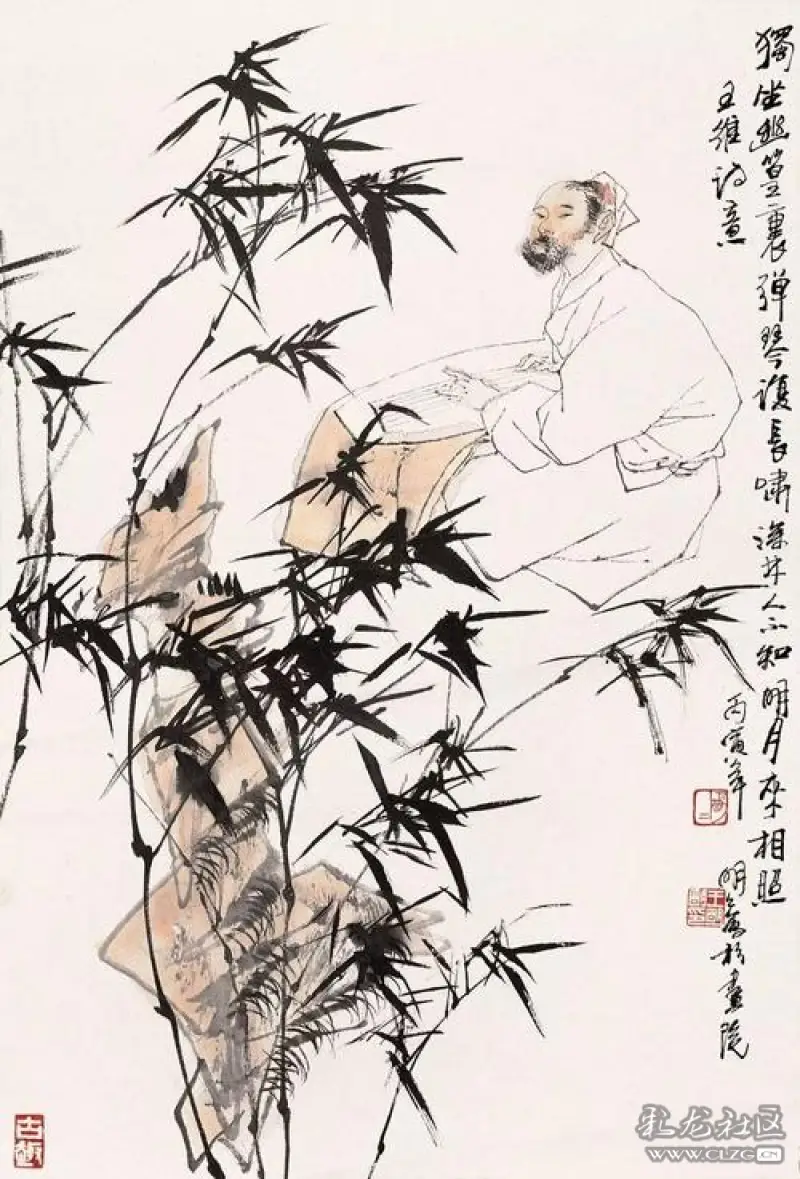 獨坐幽篁裏弹琴復長嘯深林人不知明月来相照
王維诗意
丙寅年
明 寫於畫院
古趣
彩龙社区
WWW.CLZG.CN